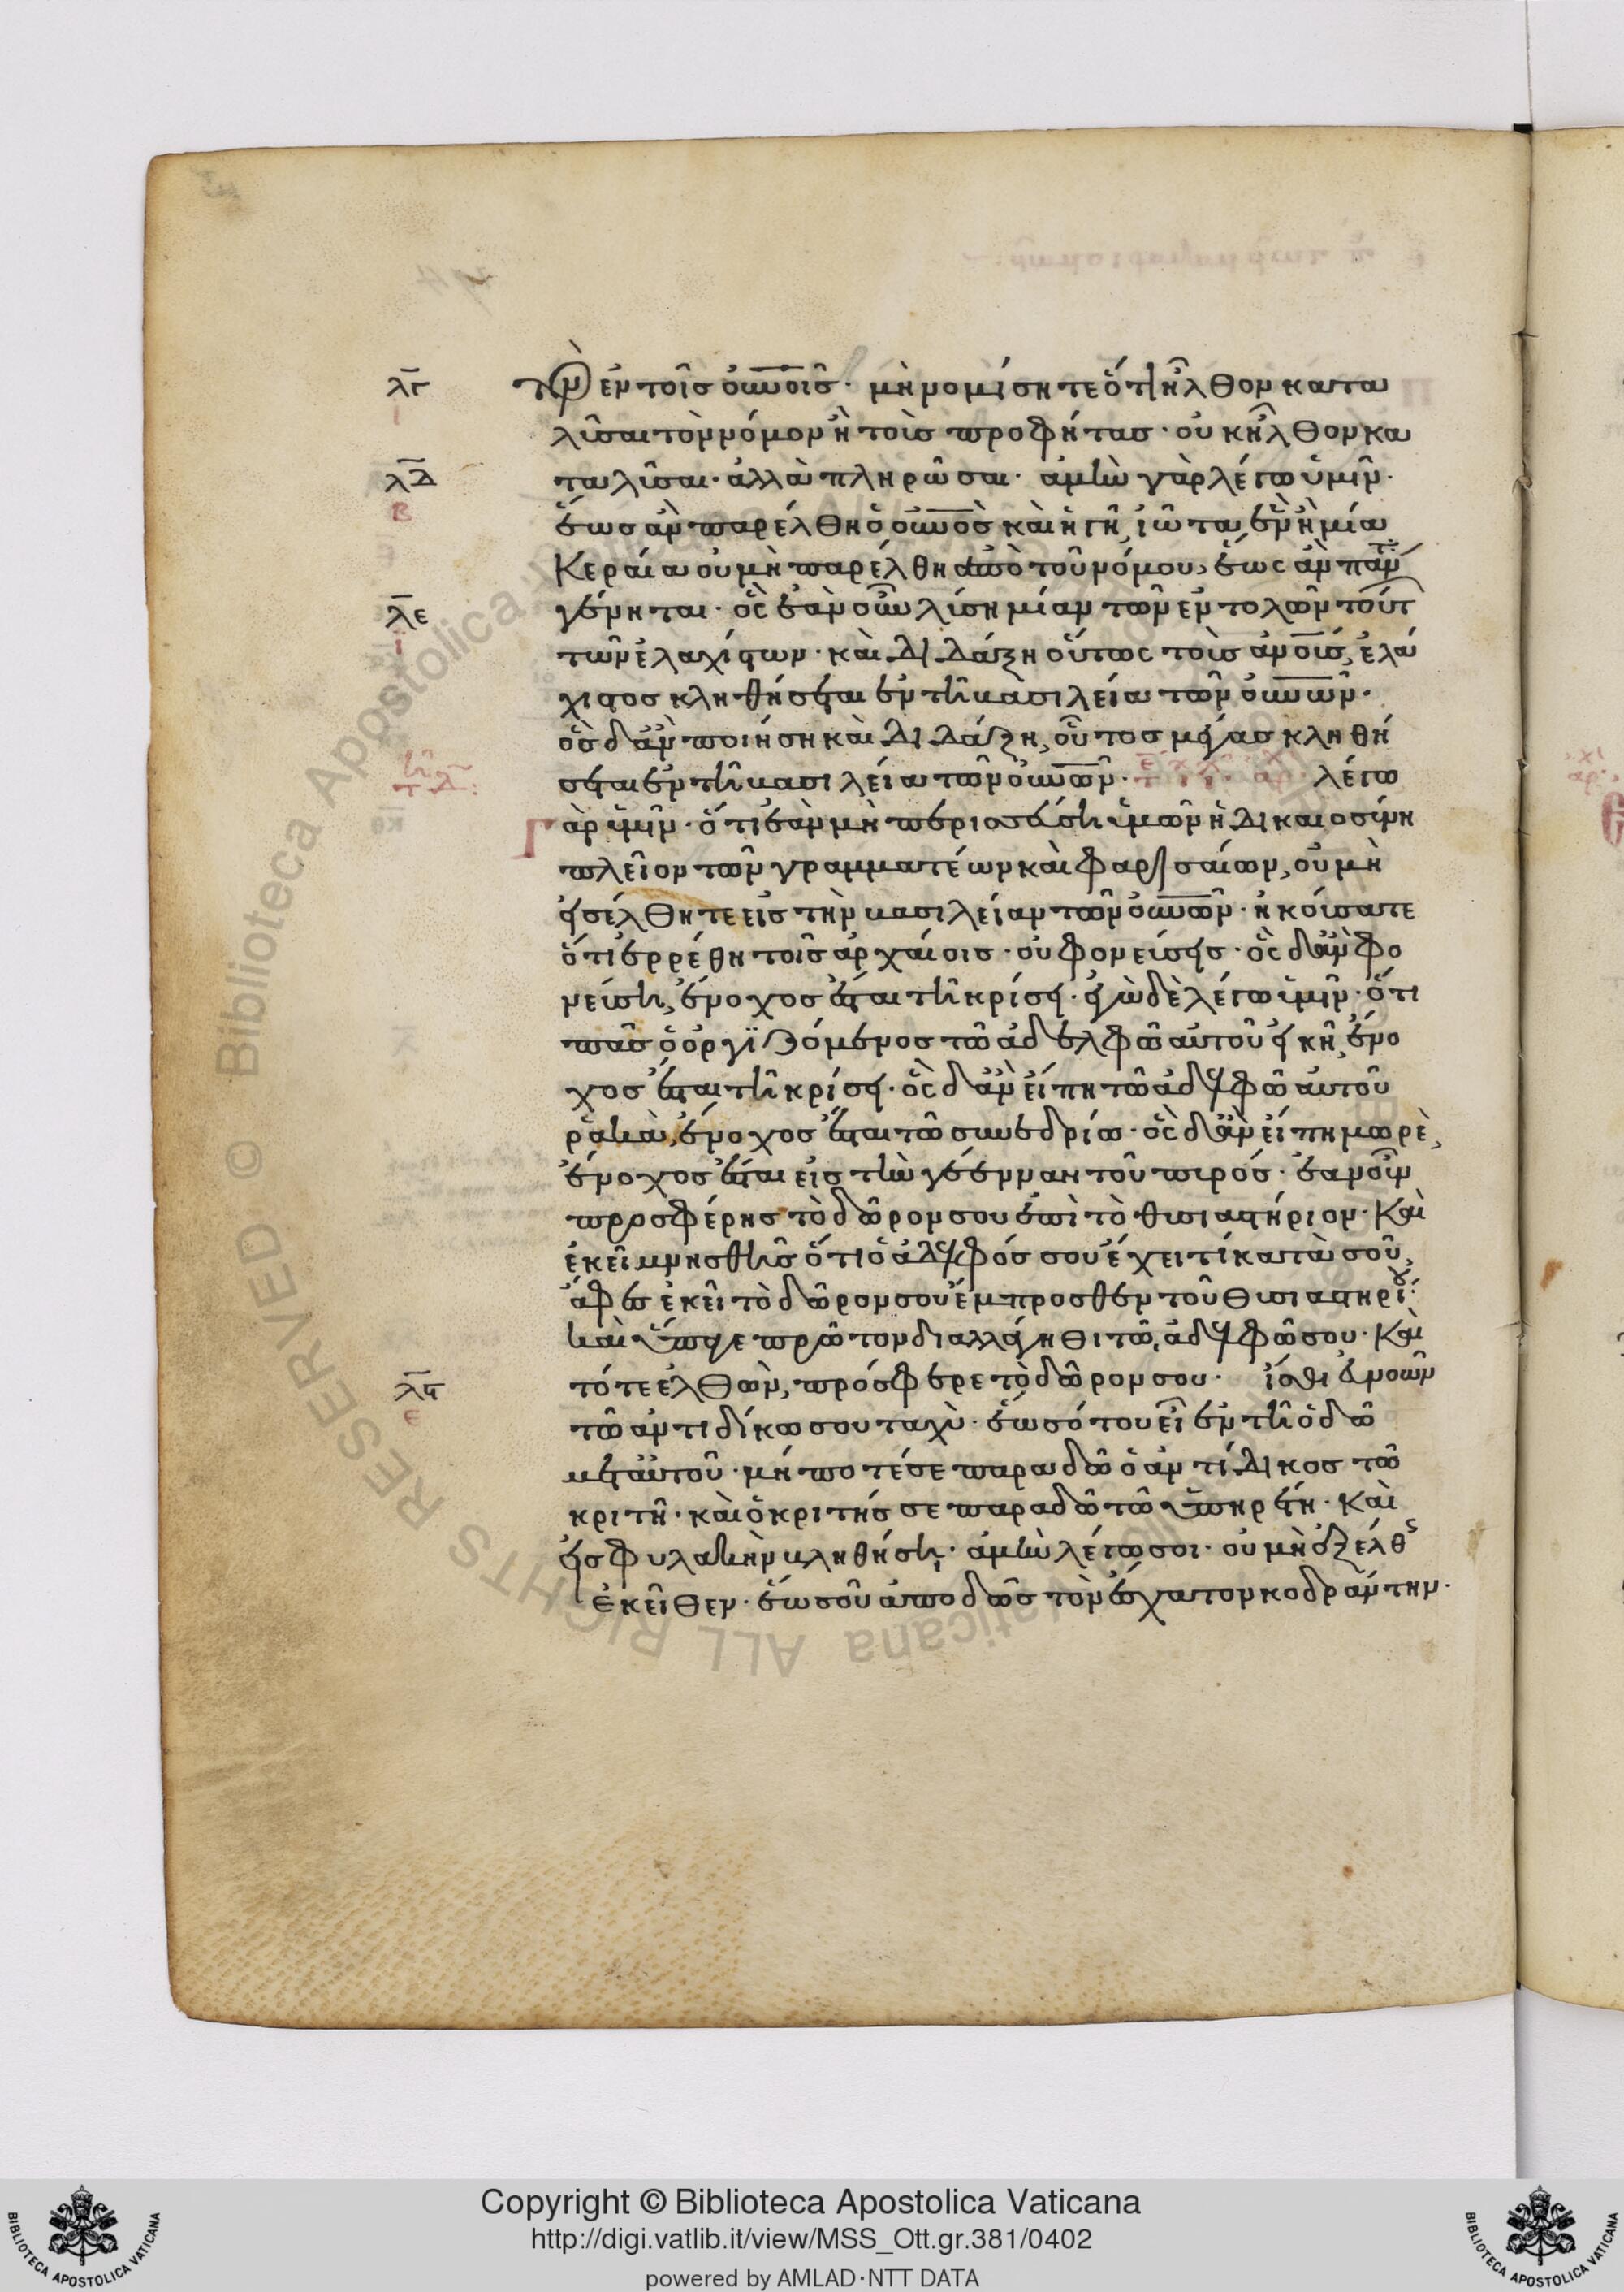 λγ τὸν ἐν τοῖς οὐνοῖς· μὴ νομίσητε ὅτι ἦλθον κατα
ι
λῦσαι τὸν νόμον ἢ τοὺς προφήτας· οὐκ ἦλθον κα
λδ ταλῦσαι· ἀλλὰ πληρῶσαι· ἀμὴν γὰρ λέγω ὑμῖν·
β
ἕως ἂν παρέλθη ὁ οὐνὸς καὶ ἡ γῆ, ἰῶτα ἓν ἢ μία
κεραία οὐ μὴ παρέλθη ἀπὸ τοῦ νόμου, ἕως ἂν πάντ
λε γένηται· ὃς ἐὰν οὖν λύση μίαν τῶν ἐντολῶν τούτ
ι
τῶν ἐλαχίστων· καὶ διδάξη οὕτως τοὺς ἀνους, ἐλά
χιστος κληθήσεται ἐν τῆ βασιλεία τῶν οὐνῶν·
ὃς δ ἂν ποιήση καὶ διδάξη, οὗτος μέγας κληθή
σεται ἐν τῆ βασιλεία τῶν οὐνῶν· λέγω
Γ ὰρ ὑμῖν· ὅτι ἐὰν μὴ περισσεύση ὑμῶν ἡ δικαιοσύνη
πλεῖον τῶν γραμματέων καὶ φαρισαίων, οὐ μὴ
εἰσέλθητε εἰς τὴν βασιλείαν τῶν οὐνῶν· ἠκούσατε
ὅτι ἐρρέθη τοῖς ἀρχαίοις· οὐ φονεύσεις· ὃς δ ἂν φο
νεύση, ἔνοχος ἔσται τῆ κρίσει· ἐγὼ δὲ λέγω ὑμῖν· ὅτι
πᾶς ὁ ὀργϊζόμενος τῶ ἀδελφῶ αὐτοῦ εἰκῆ, ἔνο
χος ἔσται τῆ κρίσει· ὃς δ ἂν εἴπη τῶ ἀδελφῶ αὐτοῦ
ῥακὰ, ἔνοχος ἔσται τῶ συνεδρίω· ὃς δ ἂν εἴπη μωρὲ,
ἔνοχος ἔσται εἰς τὴν γέενναν τοῦ πυρός· ἐὰν οὖν
προσφέρης τὸ δῶρον σου ἐπὶ τὸ θυσιαστήριον· Καὶ
ἐκεῖ μνησθῆς ὅτι ὁ ἀδελφός σου ἔχει τί κατὰ σοῦ,
ἄφες ἐκεῖ τὸ δῶρον σου ἔμπροσθεν τοῦ θυσιαστηρίου·
καὶ ὕπαγε πρῶτον διαλλάγηθι τῶ ἀδελφῶ σου· Καὶ
λϛ τότε ἐλθὼν, πρόσφερε τὸ δῶρον σου· ἴσθι εὐνοῶν
ε
τῶ ἀντιδίκω σου ταχὺ· ἕως ὅτου εἶ ἐν τῆ ὁδῶ
μετ αὐτοῦ· μή ποτέ σε παραδῶ ὁ ἀντίδικος τῶ
κριτῆ· καὶ ὁ κριτής σε παραδῶ τῶ ὑπηρέτη· Καὶ
εἰς φυλακὴν βληθήση· ἀμὴν λέγω σοι· οὐ μὴ ἐξέλθς
ἐκεῖθεν· ἕως οὗ ἀποδῶς τὸν ἔσχατον κοδράντην·
Biblioteca Apostolica Vaticana
ALL RIGHTS RESERVED ©
Copyright © Biblioteca Apostolica Vaticana
http://digi.vatlib.it/view/MSS_Ott.gr.381/0402
powered by AMLAD·NTT DATA
BIBLIOTECA APOSTOLICA VATICANA
BIBLIOTECA APOSTOLICA VATICANA